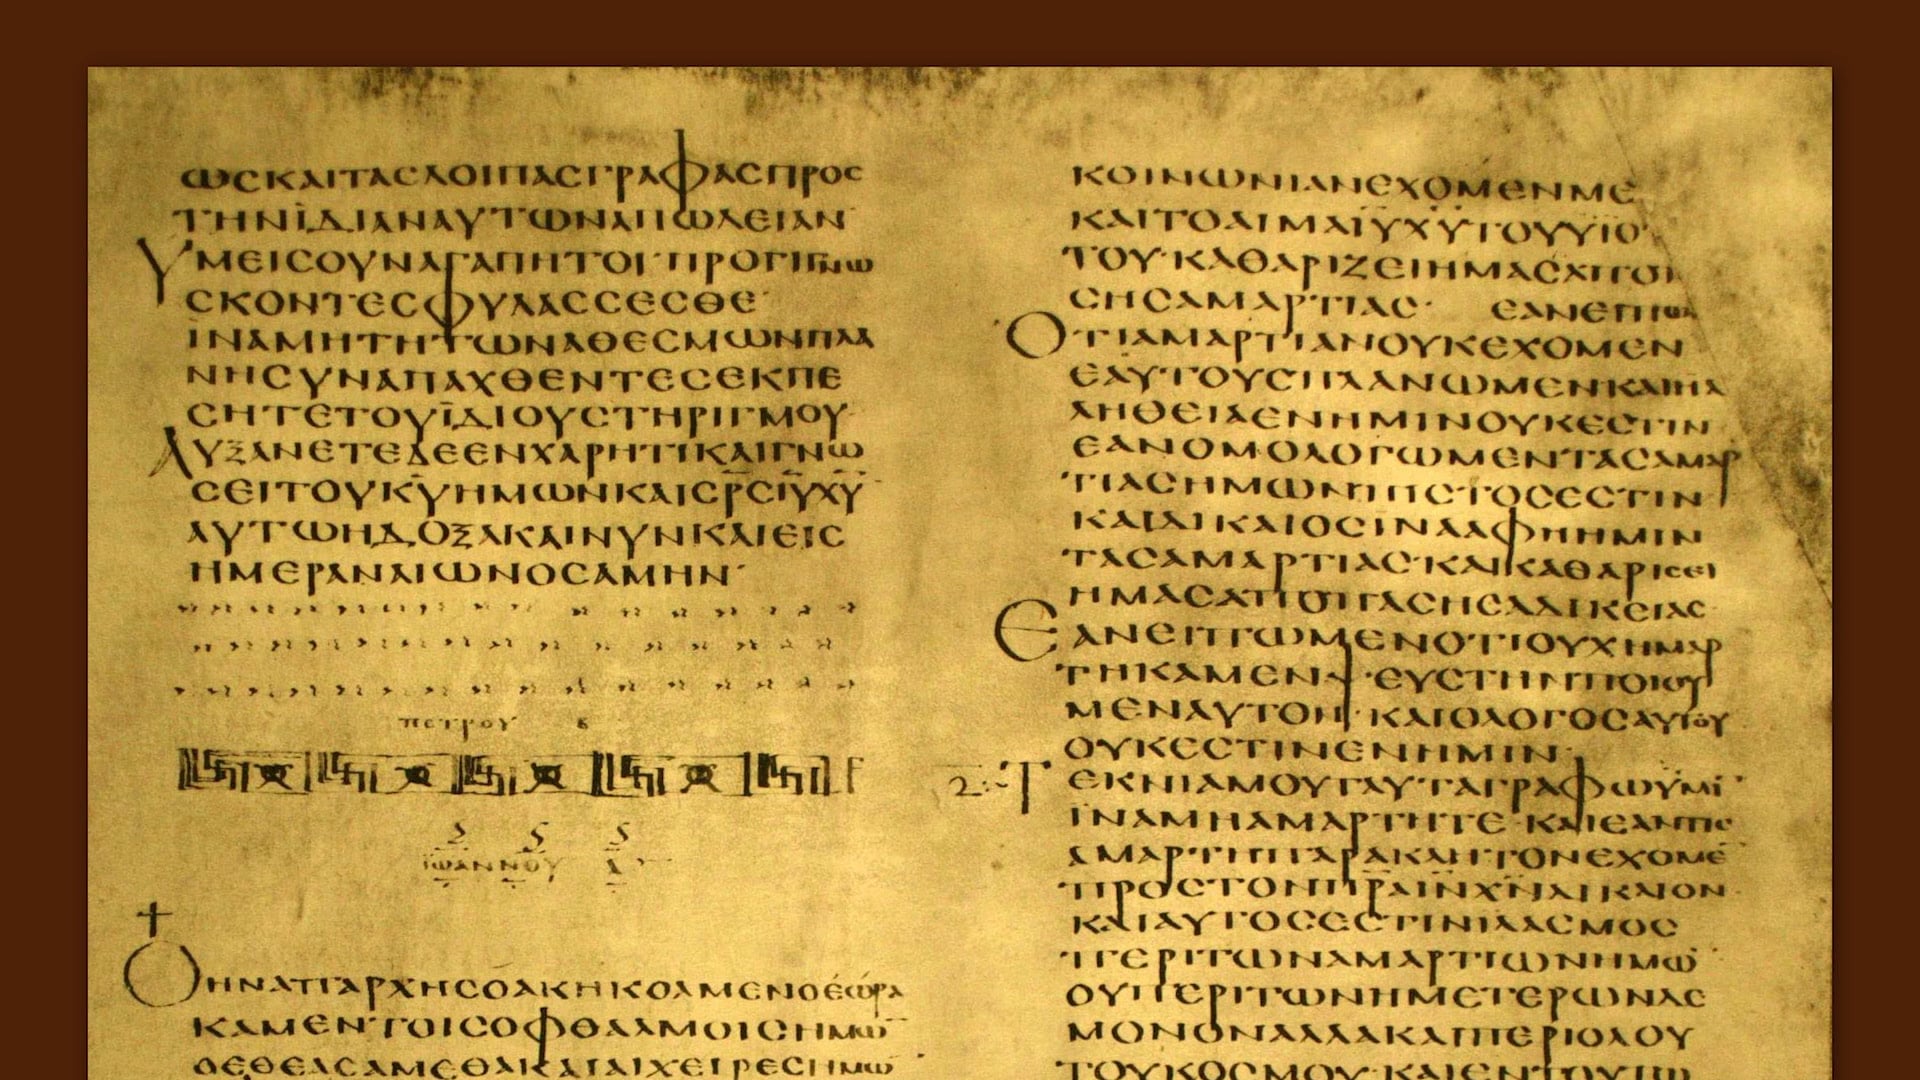 ΩϹΚΑΙΤΑϹΛΟΙΠΑϹΓΡΑΦΑϹΠΡΟϹ
ΤΗΝΪΔΙΑΝΑΥΤΩΝΑΠΩΛΕΙΑΝ
ΥΜΕΙϹΟΥΝΑΓΑΠΗΤΟΙ·ΠΡΟΓΙΓΝΩ
ϹΚΟΝΤΕϹΦΥΛΑϹϹΕϹΘΕ
ΪΝΑΜΗΤΗΤΩΝΑΘΕϹΜΩΝΠΛΑ
ΝΗϹΥΝΑΠΑΧΘΕΝΤΕϹΕΚΠΕ
ϹΗΤΕΤΟΥΪΔΙΟΥϹΤΗΡΙΓΜΟΥ
ΑΥΞΑΝΕΤΕΔΕΕΝΧΑΡΗΤΙΚΑΙΓΝΩ
ϹΕΙΤΟΥΚ̅Υ̅ΗΜΩΝΚΑΙϹ̅Ρ̅Ϲ̅Ι̅Υ̅Χ̅Υ̅
ΑΥΤΩΗΔΟΞΑΚΑΙΝΥΝΚΑΙΕΙϹ
ΗΜΕΡΑΝΑΙΩΝΟϹΑΜΗΝ·
ΠΕΤΡΟΥ Β
ΪΩΑΝΝΟΥ Α
ΟΗΝΑΠΑΡΧΗϹΟΑΚΗΚΟΑΜΕΝΟΕΩΡΑ
ΚΑΜΕΝΤΟΙϹΟΦΘΑΛΜΟΙϹΗΜΩ̅
ΟΕΘΕΑϹΑΜΕΘΑΚΑΙΑΙΧΕΙΡΕϹΗΜΩ̅
ΚΟΙΝΩΝΙΑΝΕΧΟΜΕΝΜΕ
ΚΑΙΤΟΑΙΜΑΪ̅Υ̅Χ̅Υ̅ΤΟΥΥΪΟΥ
ΤΟΥ·ΚΑΘΑΡΙΖΕΙΗΜΑϹΑΠΟΠΑ
ϹΗϹΑΜΑΡΤΙΑϹ· ΕΑΝΕΙΠΩΜ
ΟΤΙΑΜΑΡΤΙΑΝΟΥΚΕΧΟΜΕΝ
ΕΑΥΤΟΥϹΠΛΑΝΩΜΕΝ·ΚΑΙΗΑ
ΛΗΘΕΙΑΕΝΗΜΙΝΟΥΚΕϹΤΙΝ
ΕΑΝΟΜΟΛΟΓΩΜΕΝΤΑϹΑΜΑΡ
ΤΙΑϹΗΜΩΝΠΙϹΤΟϹΕϹΤΙΝ
ΚΑΙΔΙΚΑΙΟϹΙΝΑΑΦΗΗΜΙΝ
ΤΑϹΑΜΑΡΤΙΑϹ·ΚΑΙΚΑΘΑΡΙϹΕΙ
ΗΜΑϹΑΠΟΠΑϹΗϹΑΔΙΚΕΙΑϹ
ΕΑΝΕΙΠΩΜΕΝΟΤΙΟΥΧΗΜΑΡ
ΤΗΚΑΜΕΝ·ΨΕΥϹΤΗΝΠΟΙΟΥ
ΜΕΝΑΥΤΟΝ·ΚΑΙΟΛΟΓΟϹΑΥΤΟΥ
ΟΥΚΕϹΤΙΝΕΝΗΜΙΝ·
ΤΕΚΝΙΑΜΟΥΤΑΥΤΑΓΡΑΦΩΫΜΙ̅
ΪΝΑΜΗΑΜΑΡΤΗΤΕ·ΚΑΙΕΑΝΤΙϹ
ΑΜΑΡΤΗΠΑΡΑΚΛΗΤΟΝΕΧΟΜΕ̅
ΠΡΟϹΤΟΝΠ̅Ρ̅Α̅Ι̅Ν̅Χ̅Ν̅ΔΙΚΑΙΟΝ
ΚΑΙΑΥΤΟϹΕϹΤΙΝΙΛΑϹΜΟϹ
ΠΕΡΙΤΩΝΑΜΑΡΤΙΩΝΗΜΩ̅
ΟΥΠΕΡΙΤΩΝΗΜΕΤΕΡΩΝΔΕ
ΜΟΝΟΝΑΛΛΑΚΑΙΠΕΡΙΟΛΟΥ
ΤΟΥΚΟϹΜΟΥ·ΚΑΙΕΝΤΟΥΤΩ